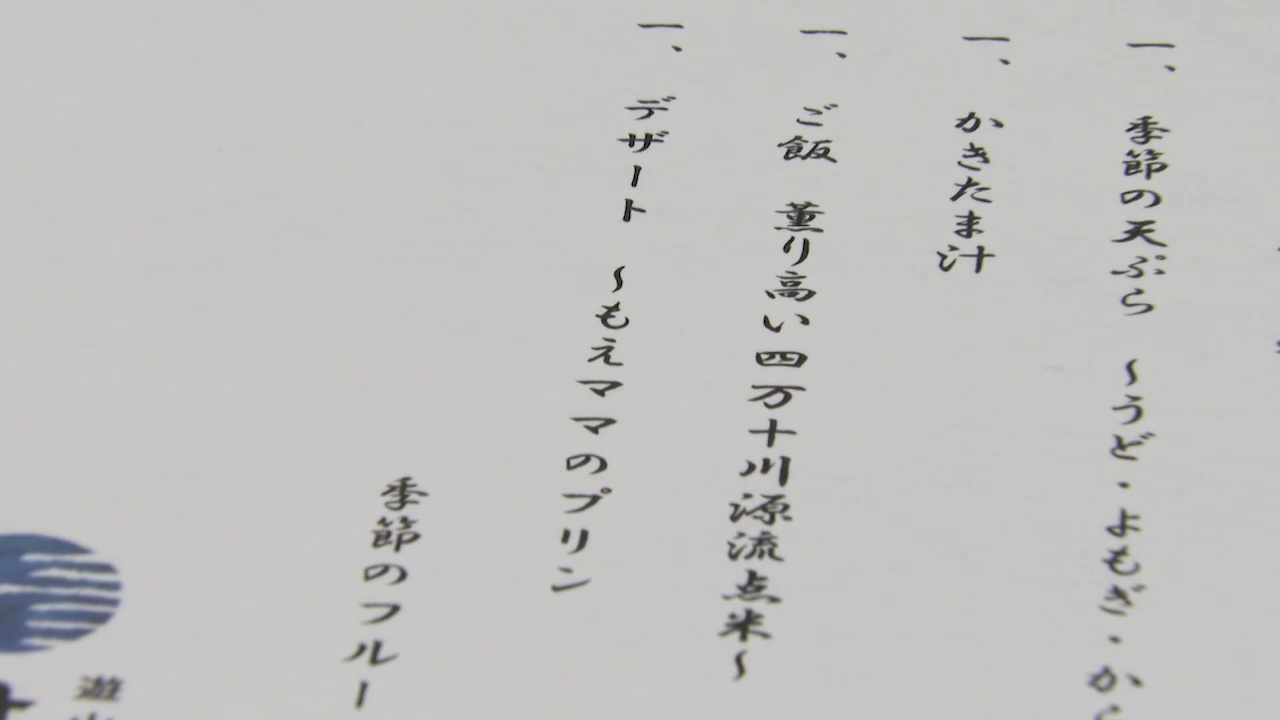 一、季節の天ぷら ～うど・よもぎ・から
一、かきたま汁
一、ご飯 薫り高い四万十川源流点米～
一、デザート ～もえママのプリン
季節のフルー
遊